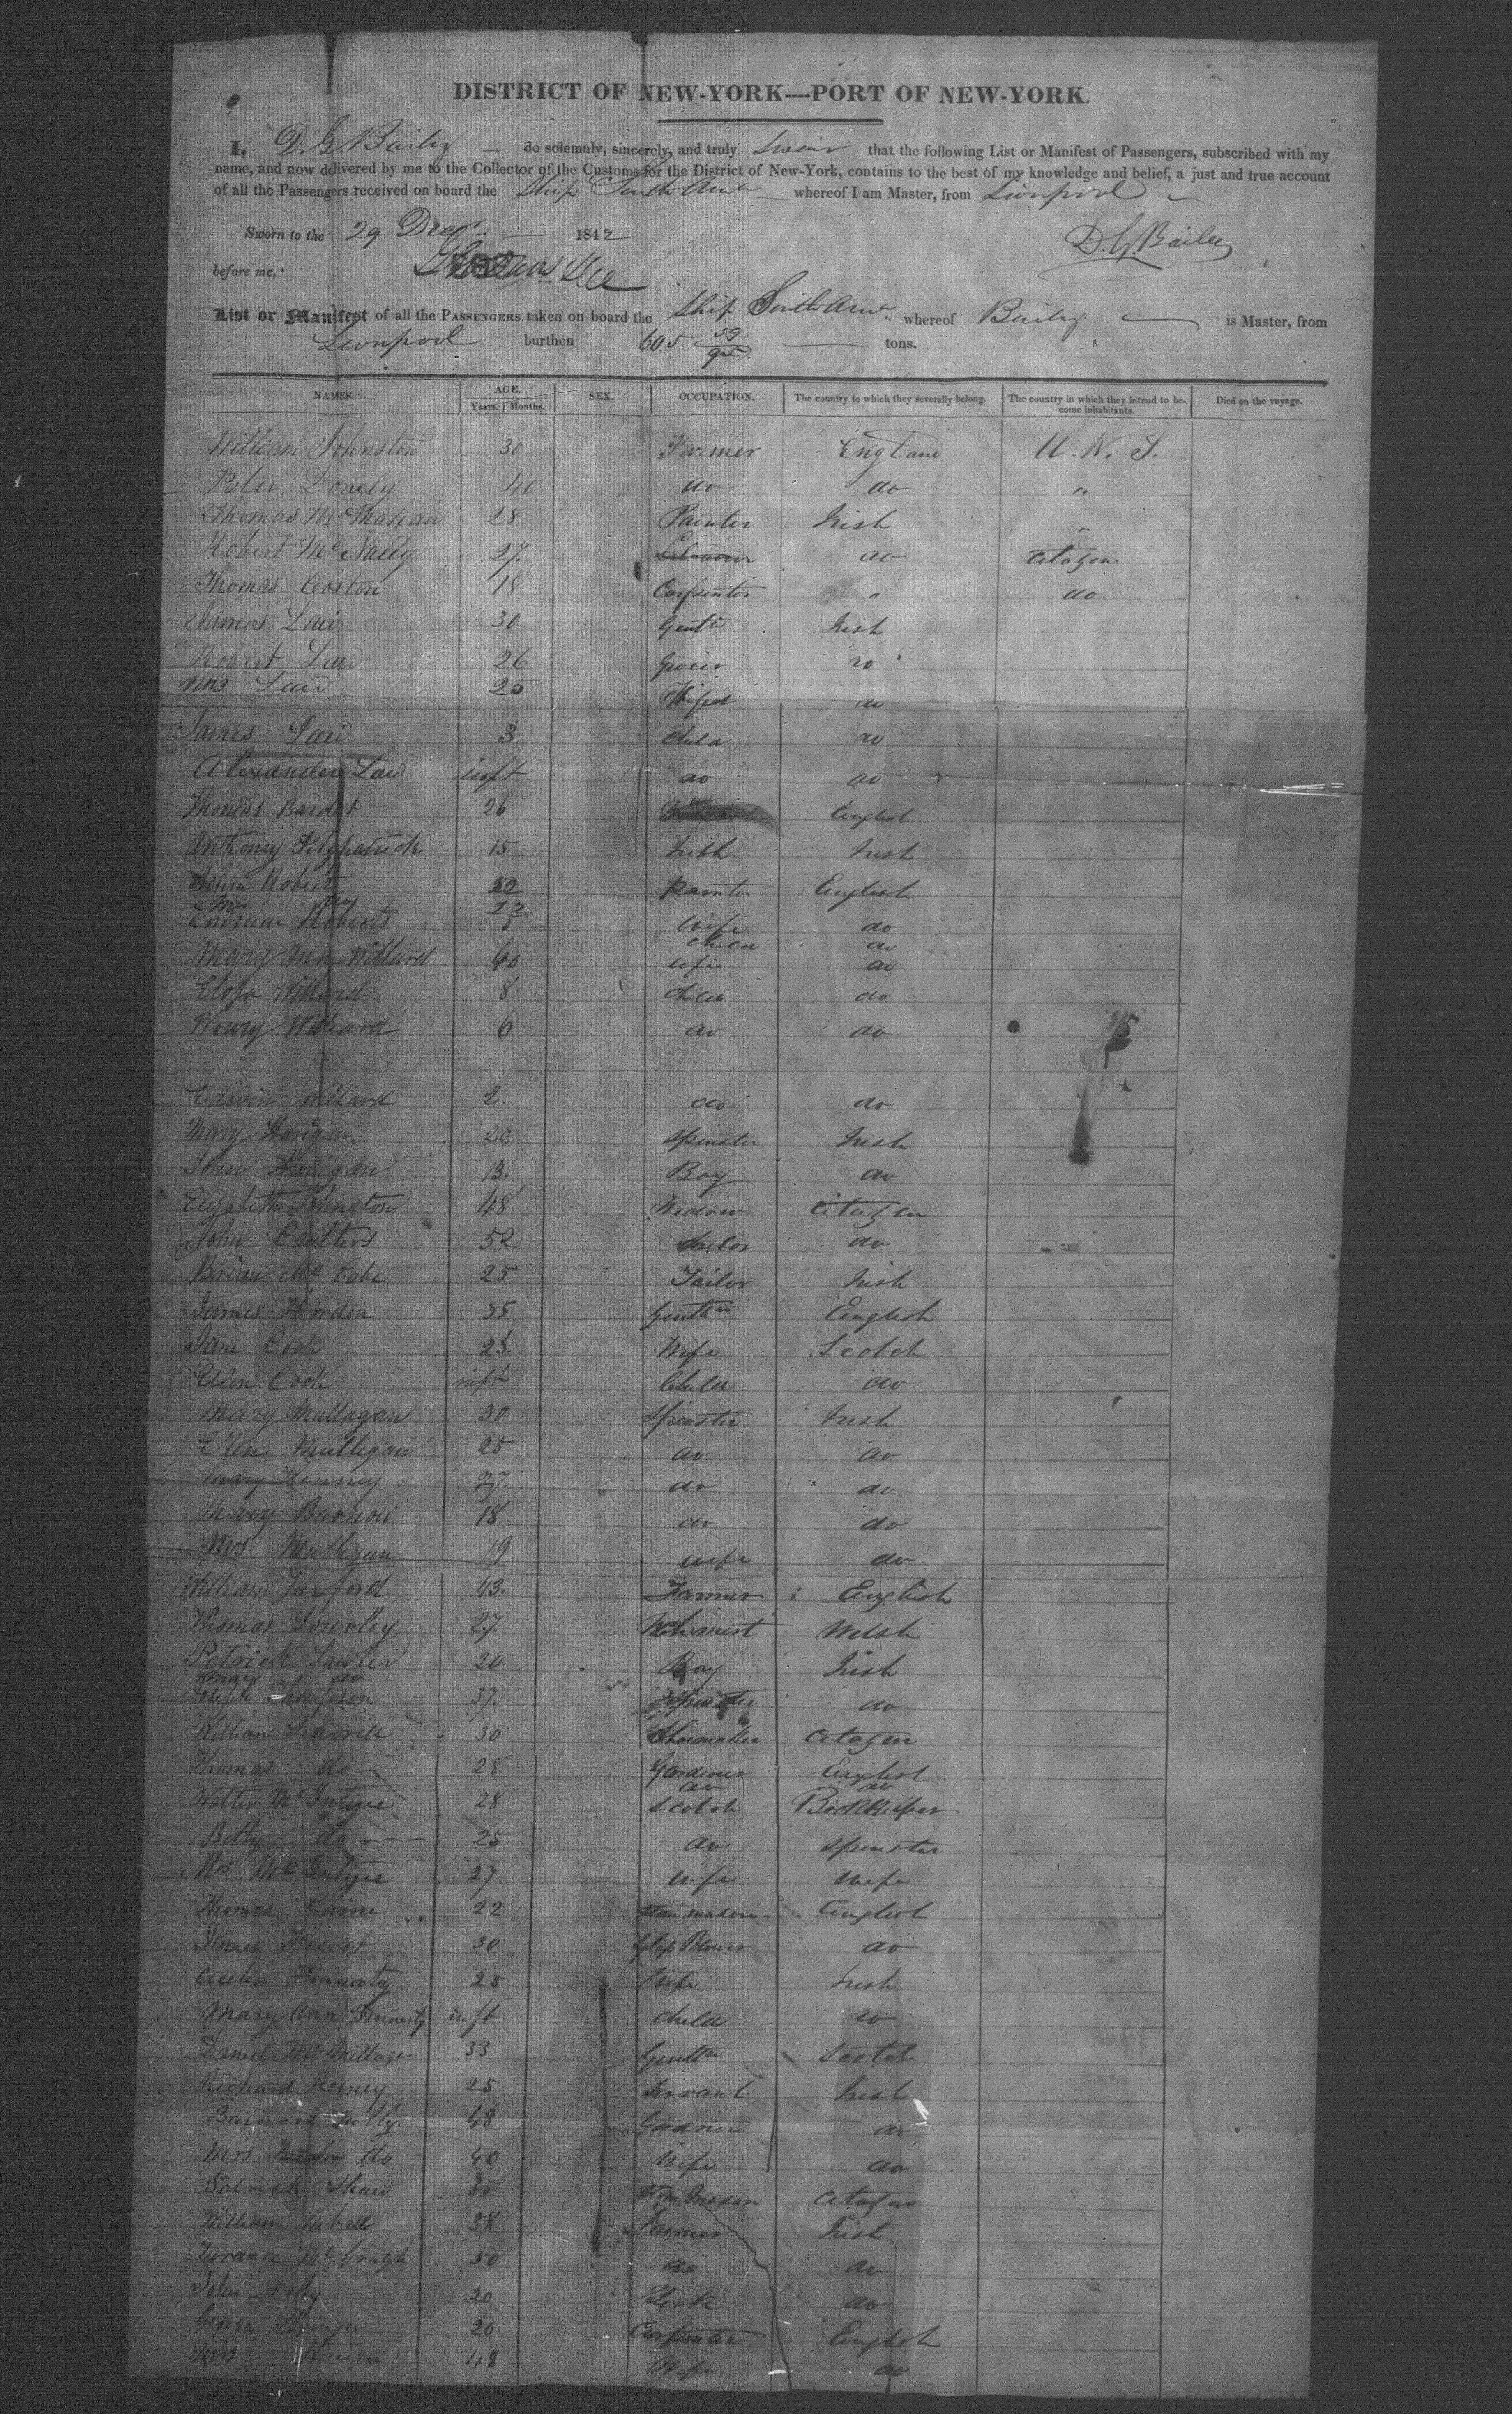 DISTRICT OF NEW-YORK----PORT OF NEW-YORK.
I, D. G. Bailey do solemnly, sincerely, and truly swear that the following List or Manifest of Passengers, subscribed with my
name, and now delivered by me to the Collector of the Customs for the District of New-York, contains to the best of my knowledge and belief, a just and true account
of all the Passengers received on board the Ship whereof I am Master, from Liverpool
Sworn to the 29 Decr. 1842 D. G. Bailey
before me,
List or Manifest of all the PASSENGERS taken on board the Ship whereof Bailey is Master, from
Liverpool burthen 605 59/95 tons.
NAMES. AGE. SEX. OCCUPATION. The country to which they severally belong. The country in which they intend to be- Died on the voyage.
Years. Months. come inhabitants.
William Johnston 30 Farmer England U. N. S.
Peter Donely 40 do do "
Thomas McMahan 28 Painter Irish "
Robert McNally 27. do Citazen
Thomas Coston 18 Carpenter " do
James Law 30 Gentln Irish
Robert Law 26 Grocer do
Mrs Law 25 Wife do
James Law 3 child do
Alexander Law inft do do
Thomas 26 English
Anthony Fitzpatrick 15 Irish Irish
John Robert 52 Painter English
Mrs do 22 wife do
Emmar Roberts child do
Mary Ann Willard 40 wife do
Willard 8 child do
Willard 6 do do
Edwin Willard 2. do do
Mary Harigan 20 spinster Irish
John Harigan 13. Boy do
Elizabeth Johnston 48 Widow Citazen
John Caulters 52 do
Brian McCabe 25 Tailor Irish
James Horden 35 Gentln English
Jane Cook 25. Wife Scotch
Ellen Cook inft Child do
Mary Mullagan 30 Spinster Irish
Ellen Mulligan 25 do do
Mary Kenney 27. do do
Mary 18 do do
Mrs Mulligan 19 wife do
William 43. Farmer English
Thomas 27. Welsh
Patrick Lawler 20 Boy Irish
do
Joseph Thompson 37. Spinster do
William 30 Shoemaker Citazen
Thomas do 28 Gardener English
do do
Walter McIntyre 28 Scotch Bookkeeper
Betty do 25 do spinster
Mrs McIntyre 27 wife wife
Thomas Caine 22 stone mason English
James 30 Glass Blower do
Cecelia Finnaty 25 Wife Irish
Mary Ann Finnerty inft child do
Daniel 33 Gentln Scotch
Richard 25 Servant Irish
Barnard Tully 48 Gardner do
Mrs do 40 Wife do
Patrick Shaw 35 Stone Mason Citazen
William 38 Farmer Irish
McGough 50 do do
John 20 Clerk do
George 20 Carpenter English
Mrs 48 Wife do